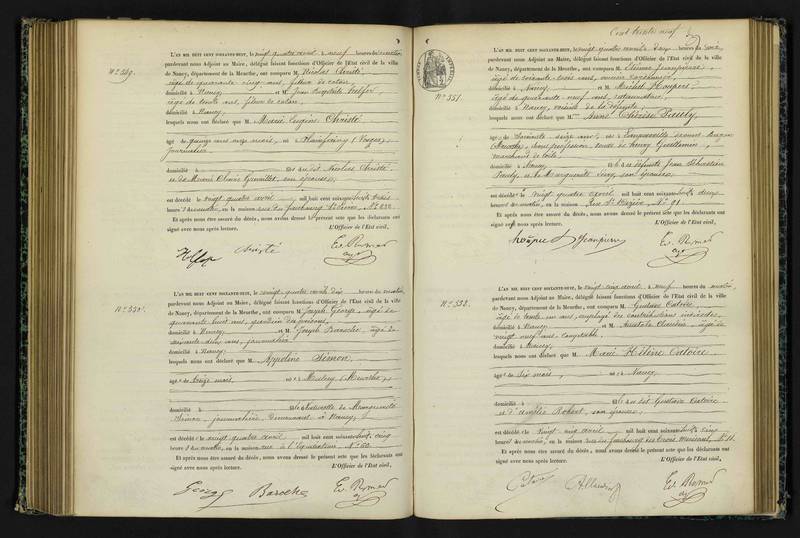 N° 549.
L'AN MIL HUIT CENT SOIXANTE-HUIT, le vingt quatre avril à neuf heures du matin
pardevant nous Adjoint au Maire, délégué faisant fonctions d'Officier de l'État civil de la ville
de Nancy, département de la Meurthe, ont comparu M. Nicolas Christé
âgé de quarante cinq ans,
domicilié à Nancy et M. Jean Baptiste
âgé de trente ans,
domicilié à Nancy,
lesquels nous ont déclaré que M. Marie Eugène Christé
âgé de quinze ans onze mois, né à (Vosges)
journalier
domicilié à Nancy fils du dit Nicolas Christé
et de Marie Claire son épouse,
est décédé le vingt quatre avril mil huit cent soixante-huit, à trois
heures du matin, en la maison rue du faubourg St Pierre, N°
Et après nous être assuré du décès, nous avons dressé le présent acte que les déclarants ont
signé avec nous après lecture. L'Officier de l'Etat civil,
Christé
N° 550.
L'AN MIL HUIT CENT SOIXANTE-HUIT, le vingt quatre avril à dix heures du matin,
pardevant nous Adjoint au Maire, délégué faisant fonctions d'Officier de l'État civil de la ville
de Nancy, département de la Meurthe, ont comparu M. Joseph George, âgé de
quarante huit ans, gardien de prison,
domicilié à Nancy et M. Joseph Baroche, âgé de
soixante deux ans, journalier
domicilié à Nancy,
lesquels nous ont déclaré que M. Appoline Simon,
âgée de treize mois, née à (Meurthe),
domicilié à fille naturelle de Marguerite
Simon, journalière, demeurant à Nancy,
est décédée le vingt quatre avril mil huit cent soixante-huit, à cinq
heures du matin, en la maison rue de l'équitation, N° 60.
Et après nous être assuré du décès, nous avons dressé le présent acte que les déclarants ont
signé avec nous après lecture. L'Officier de l'Etat civil,
George Baroche
Cent trente neuf
N° 551.
L'AN MIL HUIT CENT SOIXANTE-HUIT, le vingt quatre avril à heures du soir,
pardevant nous Adjoint au Maire, délégué faisant fonctions d'Officier de l'État civil de la ville
de Nancy, département de la Meurthe, ont comparu M. Etienne Jeanpierre,
âgé de soixante trois ans,
domicilié à Nancy et M. Michel
âgé de quarante neuf ans,
domicilié à Nancy, voisins de la défunte,
lesquels nous ont déclaré que M. Anne Thérèse Pauly
âgée de soixante seize ans, née à
(Meurthe), sans profession, veuve de Henry Guillemin,
marchand de toile,
domiciliée à Nancy fille de défunts Jean Sébastien
Pauly et de Marguerite son épouse,
est décédée le vingt quatre avril mil huit cent soixante-huit, à deux
heures du matin, en la maison Rue St Dizier, N° 91
Et après nous être assuré du décès, nous avons dressé le présent acte que les déclarants ont
signé avec nous après lecture. L'Officier de l'Etat civil,
Jeanpierre
N° 552.
L'AN MIL HUIT CENT SOIXANTE-HUIT, le vingt cinq avril à neuf heures du matin,
pardevant nous Adjoint au Maire, délégué faisant fonctions d'Officier de l'État civil de la ville
de Nancy, département de la Meurthe, ont comparu M. Gustave Catoire,
âgé de trente un ans, employé des contributions indirectes,
domicilié à Nancy et M. Anatole âgé de
vingt neuf ans, comptable
domicilié à Nancy,
lesquels nous ont déclaré que M. Marie Hélène Catoire
âgée de dix mois, née à Nancy,
domicilié à fille du dit Gustave Catoire
et d'Amélie Robert, son épouse,
est décédée le vingt cinq avril mil huit cent soixante-huit, à cinq
heures du matin, en la maison rue du faubourg des trois Maisons, N° 16.
Et après nous être assuré du décès, nous avons dressé le présent acte que les déclarants ont
signé avec nous après lecture. L'Officier de l'Etat civil,
Catoire